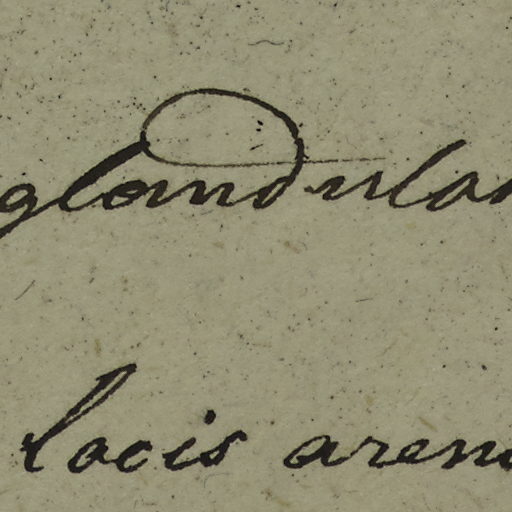 glandula
locis aren